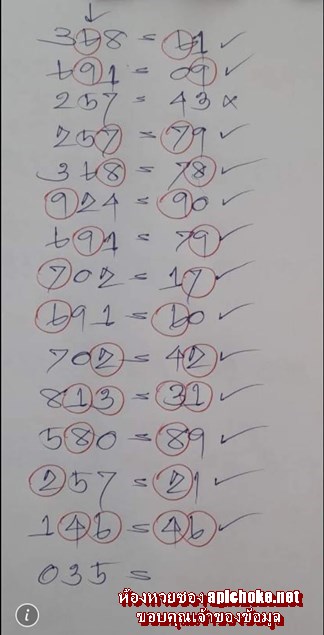 368 = 61 ✓
691 = 09 ✓
257 = 43 ×
257 = 79 ✓
368 = 78 ✓
924 = 90 ✓
691 = 79 ✓
702 = 17 ✓
691 = 60 ✓
702 = 42 ✓
813 = 31 ✓
580 = 89 ✓
257 = 21 ✓
146 = 46 ✓
035 =
ห้องหวยซอง aplchoke.net
ขอบคุณเจ้าของข้อมูล